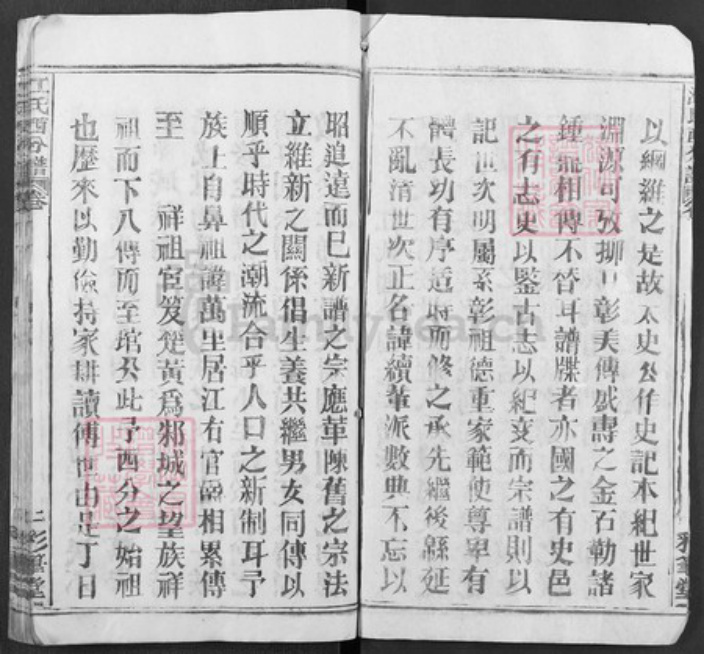 以綱維之是故太史公作史記本紀世家
淵源可攷抑且彰美傳盛壽之金石勒諸
鍾鼎相傳不啻耳譜牒者亦國之有史邑
之有志史以鑒古志以紀变而宗譜則以
記世次明屬系彰祖德重家範使尊卑有
體長幼有序适時而修之承先繼後緜延
不亂清世次正名諱續輩派數典不忘以
昭追遠而已新譜之宗應革陳舊之宗法
立維新之關係倡生養共繼男女同傳以
順乎時代之潮流合乎人口之新制耳予
族上自鼻祖諱萬里居江右官爵相累傳
至 祥祖宦笈楚黃爲邾城之望族祥
祖而下八傳而至琯公此予西分之始祖
也歷來以勤儉持家耕讀傳世由是丁日
江氏西分譜 卷
彩華堂
FamilySearch